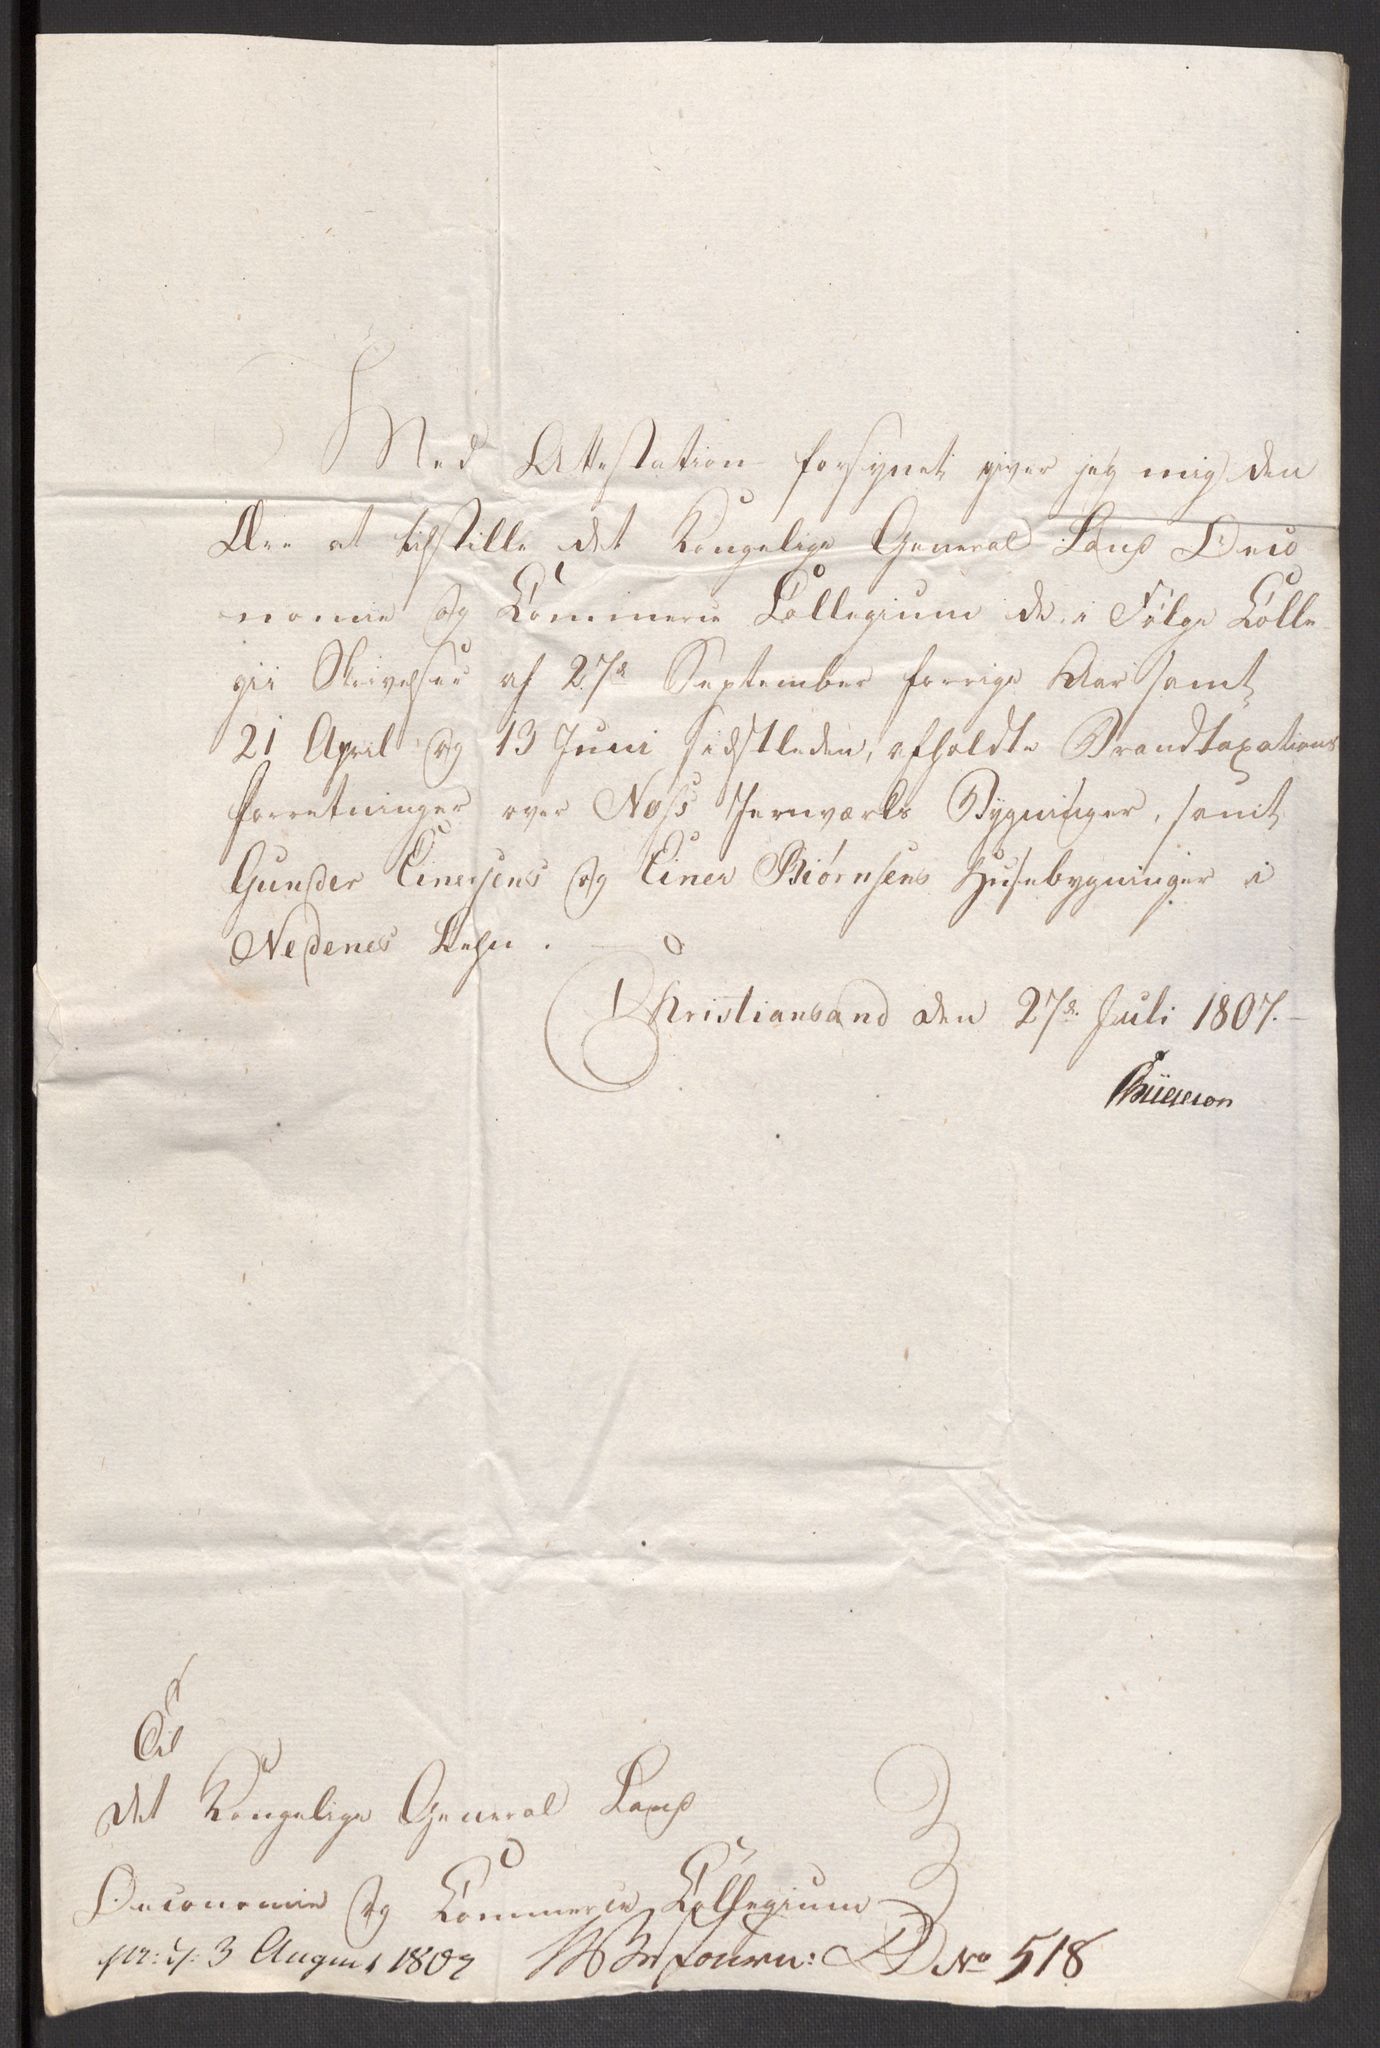 Med Attestation forsynet giver jeg mig den
Ære at tilstille det Kongelige General Land Oeco
nomie og Commerce Collegium de i Følge Colle
gii Skrivelser af 27d September forrige Aar samt
21 April og 13 Juni sidstleden, afholdte Brandtaxations
forretninger over Næss Jernværks Bygninger, samt
Gunder Einersens og Einer Biørnsens Husebygninger i
Nedenes Lehn.
Christiansand den 27d. Juli 1807.
Til
det Kongelige General Land
Oeconomie og Commerce Collegium
pr: d: 3 August 1807 Journ: D No 518